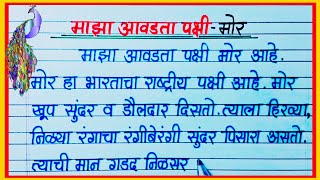 माझा आवडता पक्षी-मोर
माझा आवडता पक्षी मोर आहे.
मोर हा भारताचा राष्ट्रीय पक्षी आहे. मोर
खूप सुंदर व डौलदार दिसतो. त्याला हिरव्या,
निळ्या रंगाचा रंगीबेरंगी सुंदर पिसारा असतो.
त्याची मान गडद निळसर